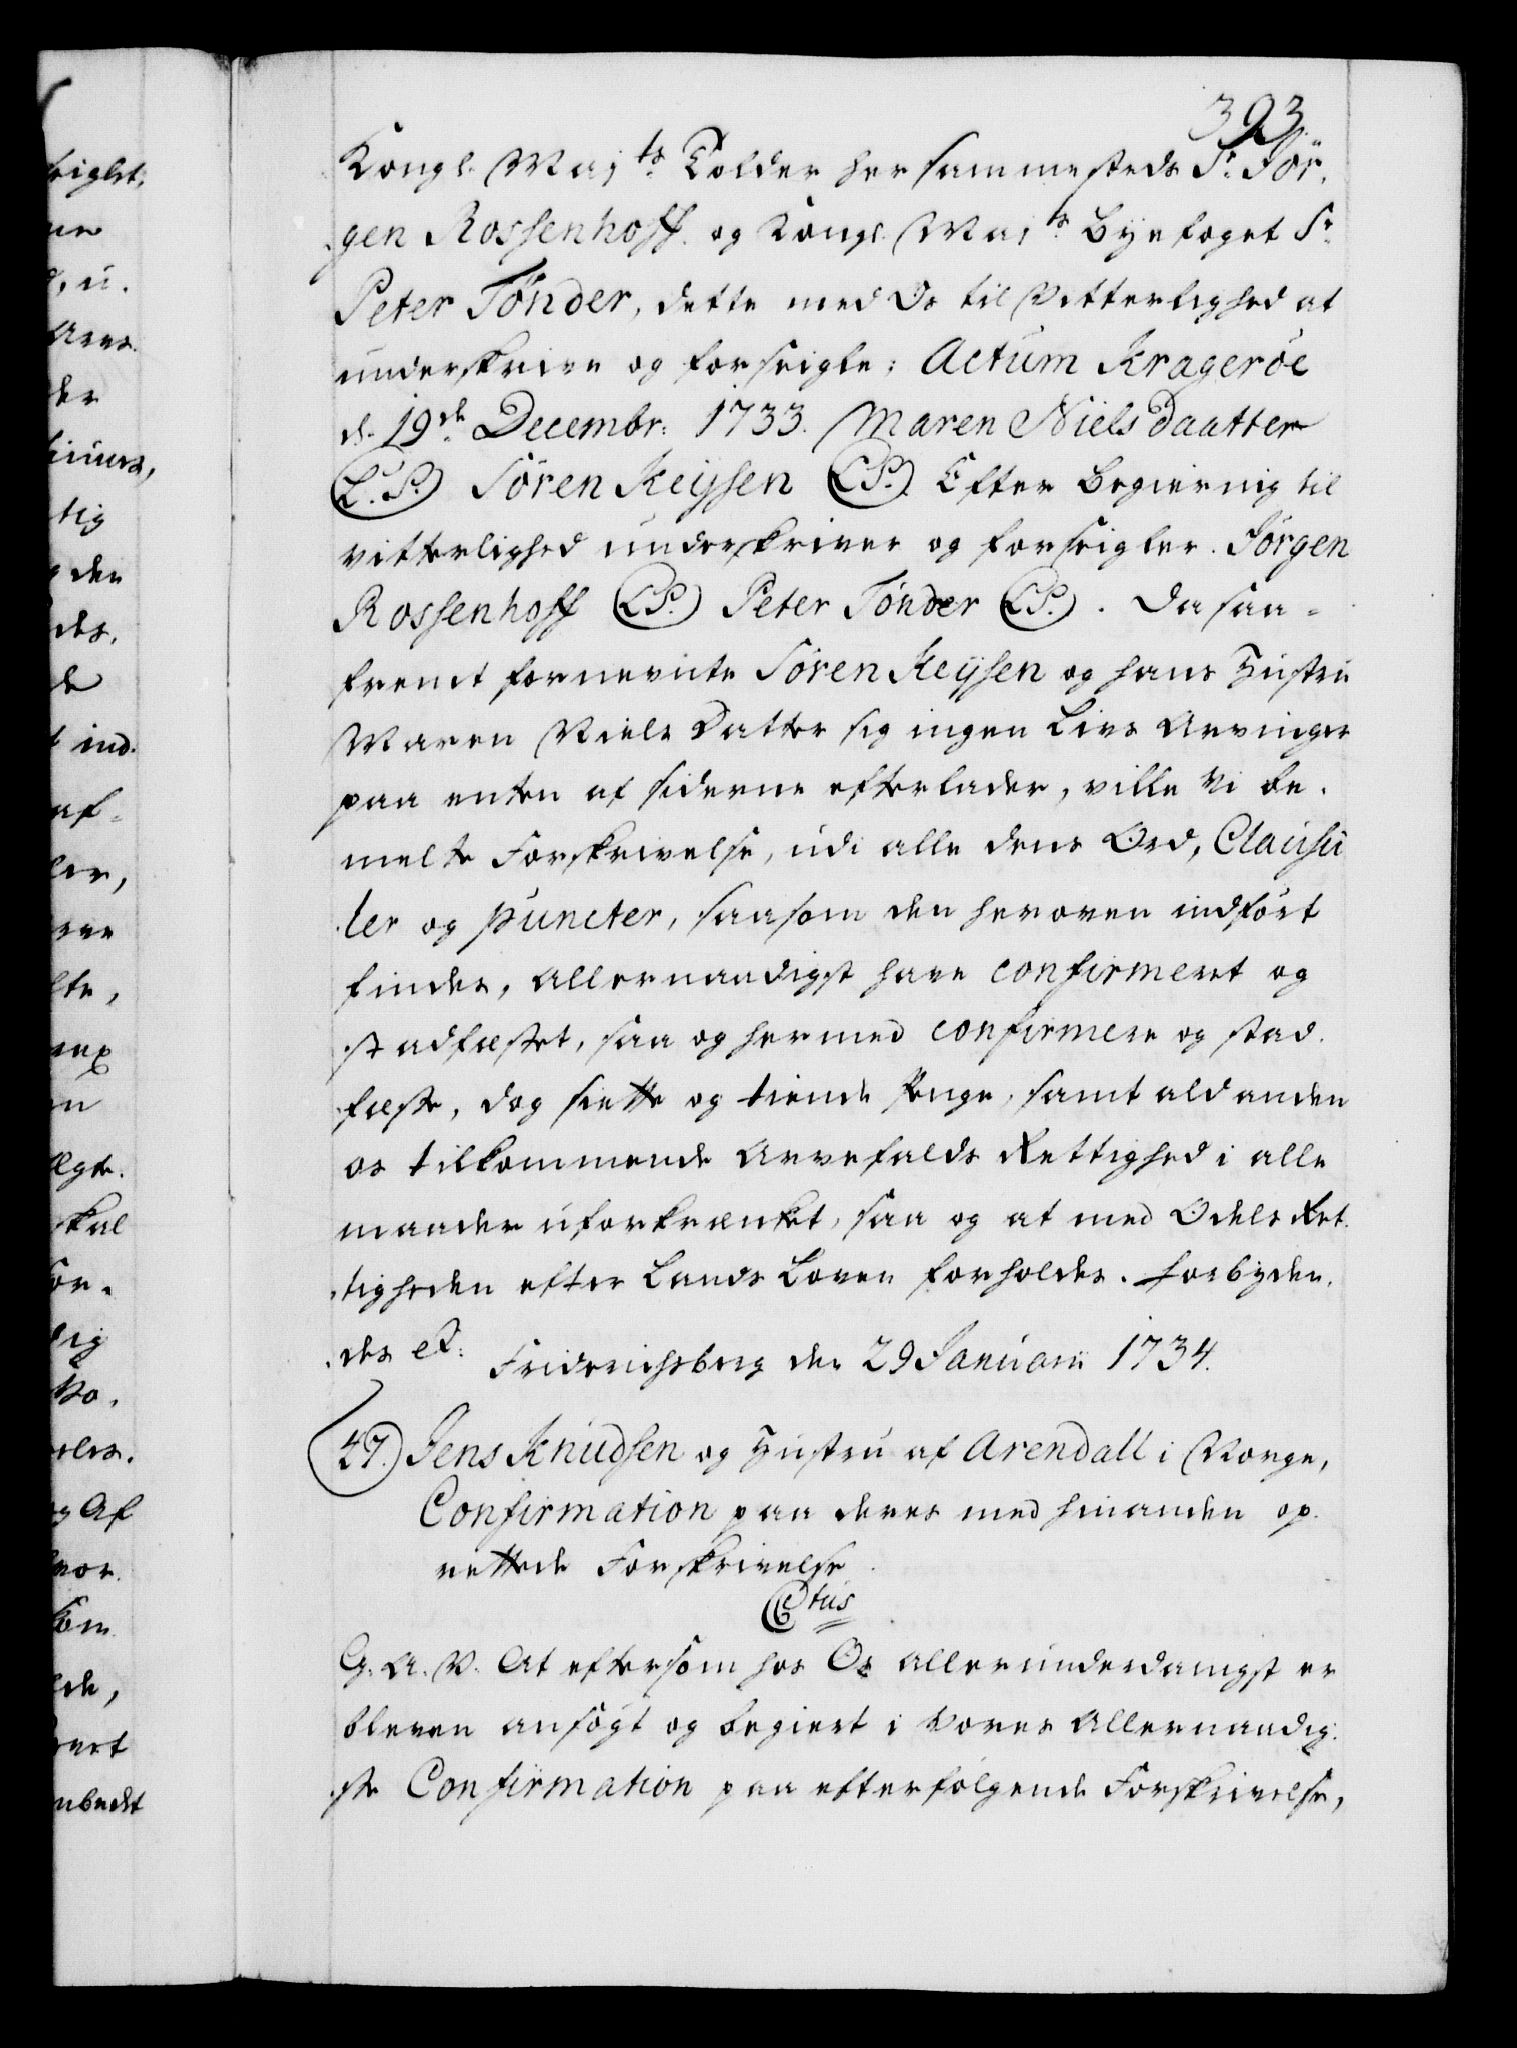 393.
Kongl. Maj.ts Tolder her sammesteds Sr. Jör-
gen Rossenhoff og Kongl. Maj.ts Byefoget Sr.
Peter Tönder, dette med Os til Vitterlighed at
underskrive og forseigle; Actum Krageröe
d. 19de Decembr: 1733. Maren Niels Daatter
(L.S.) Sören Keysen (LS.) Efter Begiering til
vitterlighed underskriver og forseigler. Jörgen
Rossenhoff (LS.) Peter Tönder (LS.). Da saa-
fremt fornevnte Sören Keysen og hans Hustru
Maren Niels Datter sig ingen Livs Arvinger
paa enten af siderne efterlader, ville Vi be-
melte Forskrivelse, udi alle dens Ord, Clausu
ler og puncter, saasom den heroven indfört
findes, Allernaadigst have confirmeret og
stadfæstet, saa og hermed confirmere og stad-
fæste, dog siette og tiende Penge, samt ald anden
os tilkommende Arvefalds Rettighed i alle
maader uforkrænket, saa og at med Odels Ret-
tigheden efter Lands Loven forholdes. Forbyden-
des etc: Friderichsberg den 29 Januarii 1734.
47. Jens Knudsen og Hustru af Arendall i Norge,
Confirmation paa deres med hinanden op-
rettede Forskrivelse.
C6tus
G. A. V. At eftersom hos Os allerunderdanigst er
bleven ansögt og begiert i Vores Allernaadig-
ste Confirmation paa efterfölgende Forskrivelse,